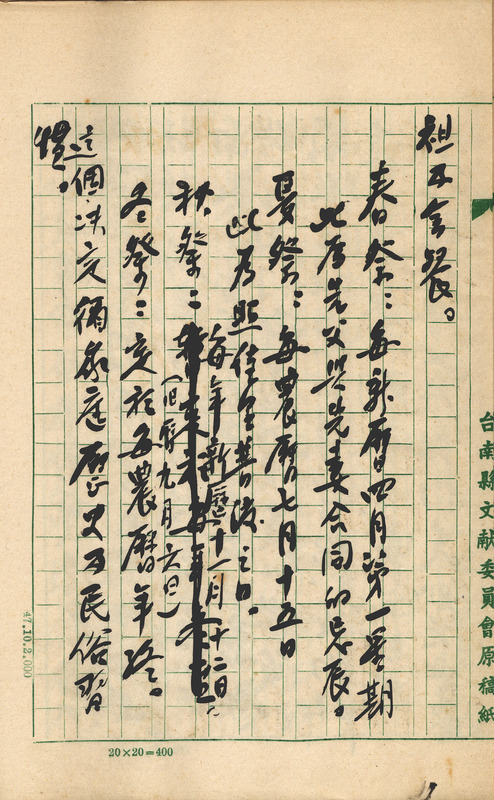 祖及会餐。
春祭：每新曆四月第一星期
此為先父與先妻合同的忌辰。
夏祭：每農曆七月十五日
此為照住里普渡之日。
秋祭：每年新曆十一月十二日。
（旧曆九月六日）
冬祭：定於每農曆年終。
這個決定循家庭歷史及民俗習
慣。
台南縣文献委員會原稿紙
47.10.2,000
20×20=400